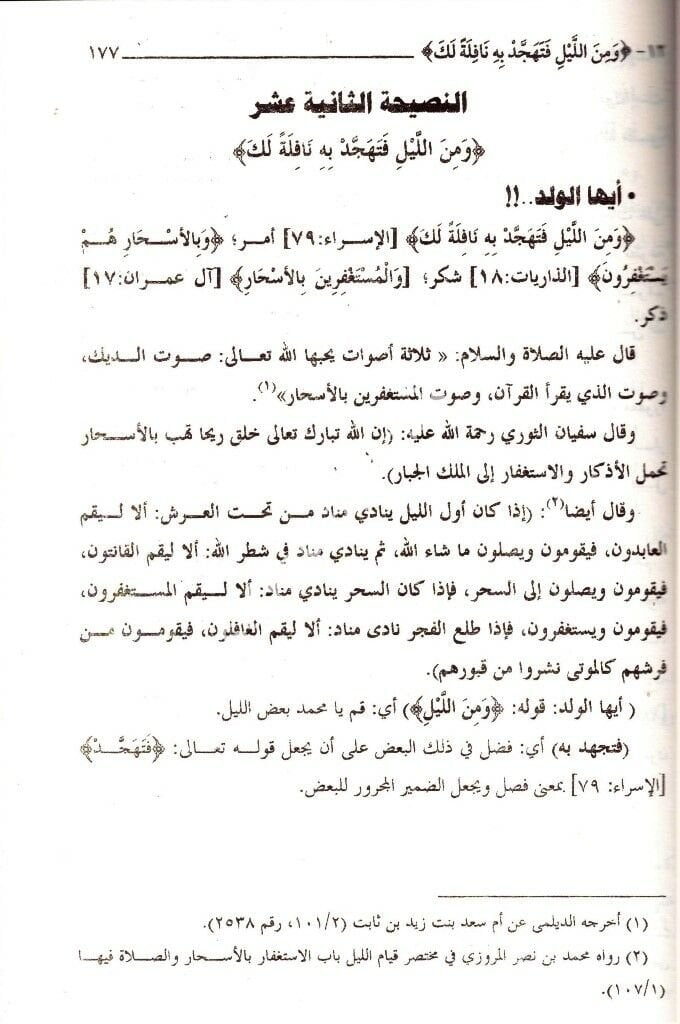 ١٢- ﴿وَمِنَ اللَّيْلِ فَتَهَجَّدْ بِهِ نَافِلَةً لَكَ﴾ ١٧٧
النصيحة الثانية عشر
﴿وَمِنَ اللَّيْلِ فَتَهَجَّدْ بِهِ نَافِلَةً لَكَ﴾
• أيها الولد..!!
﴿وَمِنَ اللَّيْلِ فَتَهَجَّدْ بِهِ نَافِلَةً لَكَ﴾ [الإسراء:٧٩] أمر؛ ﴿وَبِالأَسْحَارِ هُمْ
يَسْتَغْفِرُونَ﴾ [الذاريات:١٨] شكر؛ [وَالْمُسْتَغْفِرِينَ بِالأَسْحَارِ﴾ [آل عمران:١٧]
ذكر.
قال عليه الصلاة والسلام: « ثلاثة أصوات يحبها الله تعالى: صوت الديك،
وصوت الذي يقرأ القرآن، وصوت المستغفرين بالأسحار»(١).
وقال سفيان الثوري رحمة الله عليه: (إن الله تبارك تعالى خلق ريحا تهب بالأسحار
تحمل الأذكار والاستغفار إلى الملك الجبار).
وقال أيضا(٢): (إذا كان أول الليل ينادي مناد من تحت العرش: ألا ليقم
العابدون، فيقومون ويصلون ما شاء الله، ثم ينادي مناد في شطر الله: ألا ليقم القانتون،
فيقومون ويصلون إلى السحر، فإذا كان السحر ينادي مناد: ألا ليقم المستغفرون،
فيقومون ويستغفرون، فإذا طلع الفجر نادى مناد: ألا ليقم الغافلون، فيقومون من
فرشهم كالموتى نشروا من قبورهم).
( أيها الولد: قوله: ﴿وَمِنَ اللَّيْلِ﴾) أي: قم يا محمد بعض الليل.
(فتجهد به) أي: فضل في ذلك البعض على أن يجعل قوله تعالى: ﴿فَتَهَجَّدْ﴾
[الإسراء: ٧٩] بمعنى فصل ويجعل الضمير المجرور للبعض.
(١) أخرجه الديلمى عن أم سعد بنت زيد بن ثابت (١٠١/٢، رقم ٢٥٣٨).
(٢) رواه محمد بن نصر المروزي في مختصر قيام الليل باب الاستغفار بالأسحار والصلاة فيها
(١٠٧/١).